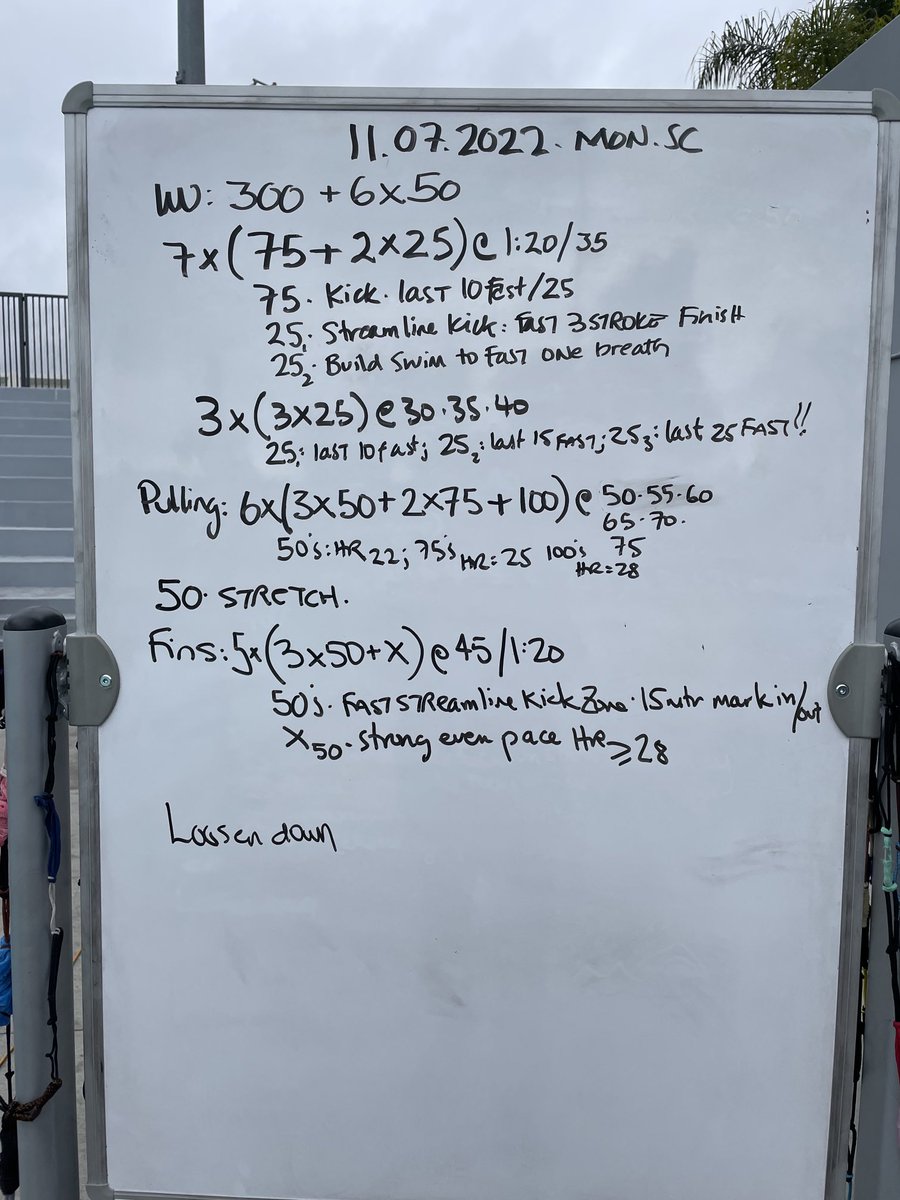 11.07.2022. MON. SC
WU: 300 + 6x50
7x(75+2x25)@1:20/35
75. Kick. last 10 fast/25
25₁. Streamline Kick: FAST 3 STROKE Finish
25₂. Build Swim to Fast one breath
3x(3x25)@30.35.40
25₁: last 10 fast; 25₂: last 15 FAST; 25₃: last 25 FAST!!
Pulling: 6x(3x50+2x75+100)@ 50.55.60
65.70.
50's: HR 22; 75's HR=25 100's 75
HR=28
50. STRETCH.
Fins: 5x(3x50+x)@45/1:20
50's. FAST STReamline Kick Zone. 15mtr mark in/out
x50. Strong even pace HR≥28
Loosen down